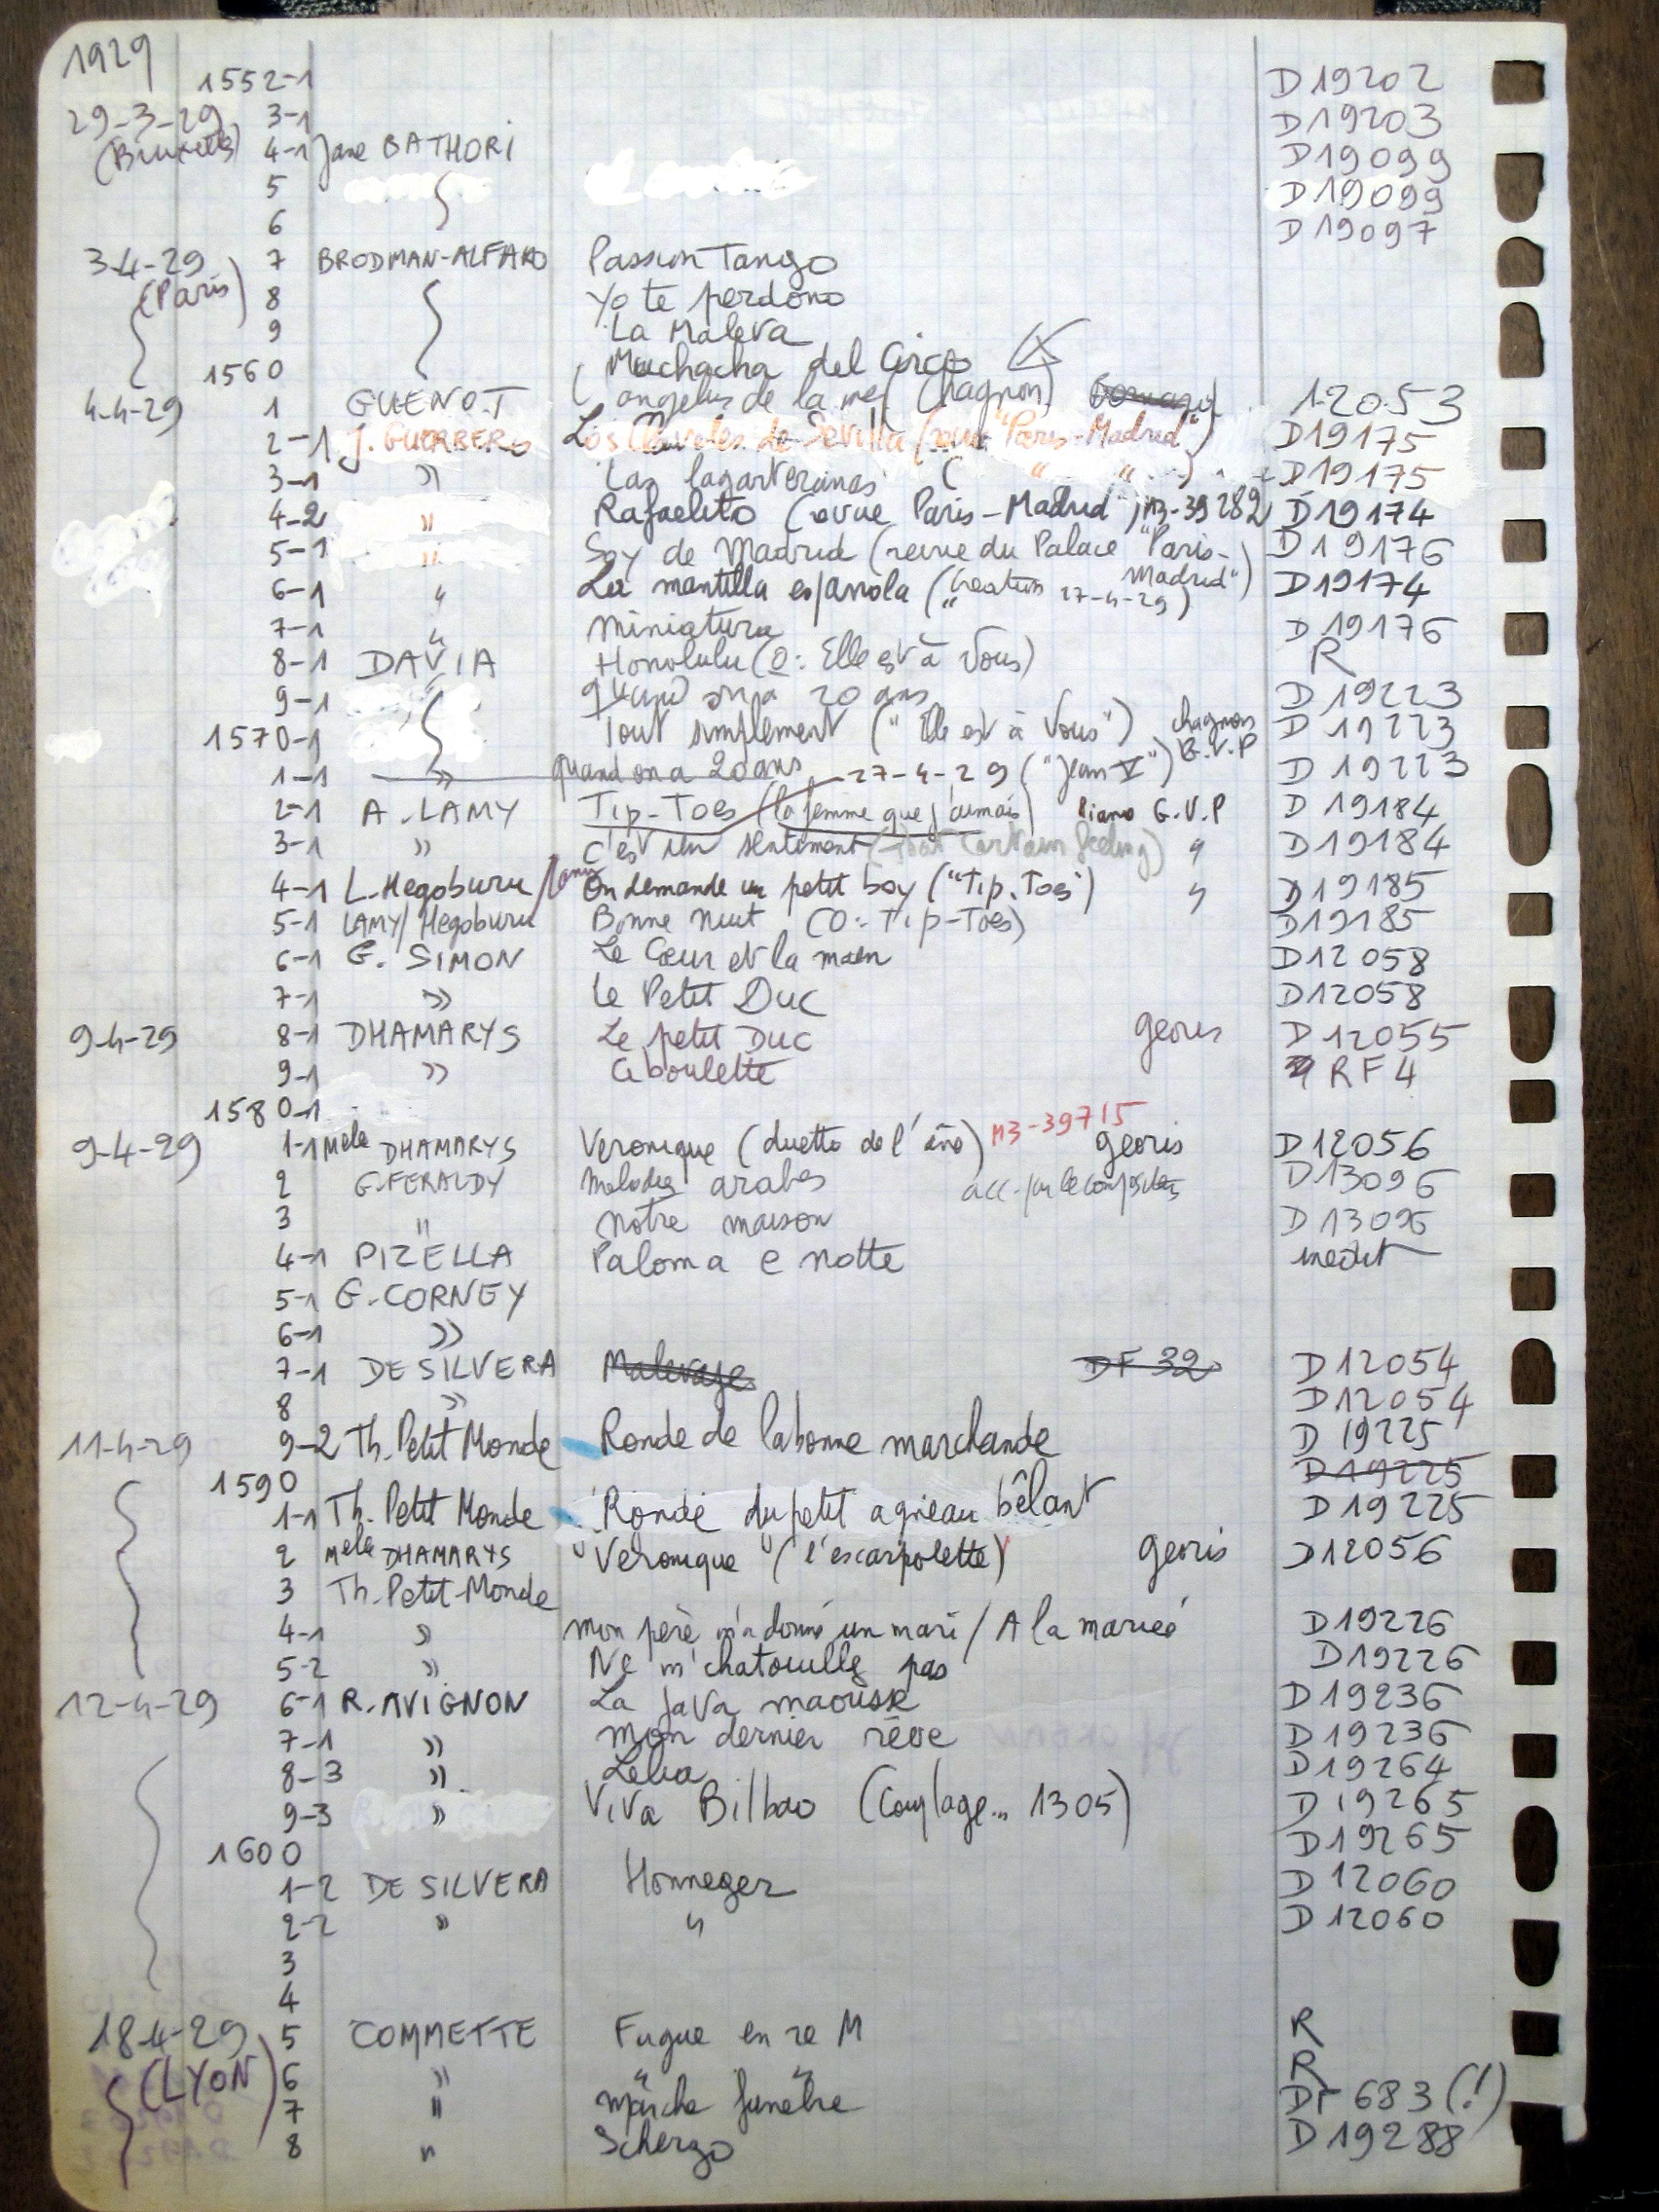 1929
1552-1 D19202
29-3-29 3-1 D19203
(Bruxelles) 4-1 Jane BATHORI D19099
5 D19099
6 D19097
3-4-29 7 BRODMAN-ALFARO Passion Tango
(Paris) 8 Yo te perdono
9 La Maleva
1560 Muchacha del Circo
4-4-29 1 GUENOT angelus de la mer (Chagnon) 12053
2-1 J. GUERRERO Los Claveles de Sevilla (revue "Paris-Madrid") D19175
3-1 » Las lagarteranas ( " " ) D19175
4-2 » Rafaelito (revue Paris-Madrid) M3-39282 D19174
5-1 " Soy de Madrid (revue du Palace "Paris-Madrid") D19176
6-1 " La mantilla española ("Creation 27-4-29) D19174
7-1 " miniatura D19176
8-1 DAVIA Honolulu (O: Elle est à Vous) R
9-1 quand on a 20 ans D19223
1570-1 Tout simplement ("Elle est à Vous") chagnon G.V.P D19223
1-1 » quand on a 20 ans 27-4-29 ("Jean V") D19223
2-1 A. LAMY Tip-Toes (la femme que j'aimais) Piano G.V.P D19184
3-1 » c'est un sentiment (that certain feeling) " D19184
4-1 L. Hegoburu / Lamy On demande un petit boy ("Tip-Toes") " D19185
5-1 LAMY/Hegoburu Bonne nuit (O: Tip-Toes) D19185
6-1 G. SIMON Le Cœur et la main D12058
7-1 » Le Petit Duc D12058
9-4-29 8-1 DHAMARYS Le petit Duc georis D12055
9-1 » Ciboulette RF4
1580-1
9-4-29 1-1 Melle DHAMARYS Veronique (duetto de l'âne) M3-39715 georis D12056
2 G.FERALDY Melodies arabes acc. par le compositeur D13096
3 " notre maison D13096
4-1 PIZELLA Paloma e notte inedit
5-1 G. CORNEY
6-1 »
7-1 DE SILVERA Malevaje DF 32 D12054
8 » D12054
11-4-29 9-2 Th. Petit Monde Ronde de la bonne marchande D19225
1590 D19225
1-1 Th. Petit Monde Ronde du petit agneau bêlant D19225
2 Melle DHAMARYS Veronique (l'escarpolette) georis D12056
3 Th. Petit-Monde
4-1 » mon père m'a donné un mari / A la mariée D19226
5-2 » Ne m'chatouille pas D19226
12-4-29 6-1 R. AVIGNON La java maousse D19236
7-1 » mon dernier rêve D19236
8-3 » Leba D19264
9-3 » Viva Bilbao (Couplage... 1305) D19265
1600 D19265
1-2 DE SILVERA Honneger D12060
2-2 » " D12060
3
4
18-4-29 5 COMMETTE Fugue en re M R
(LYON) 6 » " " R
7 " marche funèbre DF 683 (!)
8 " Scherzo D19288